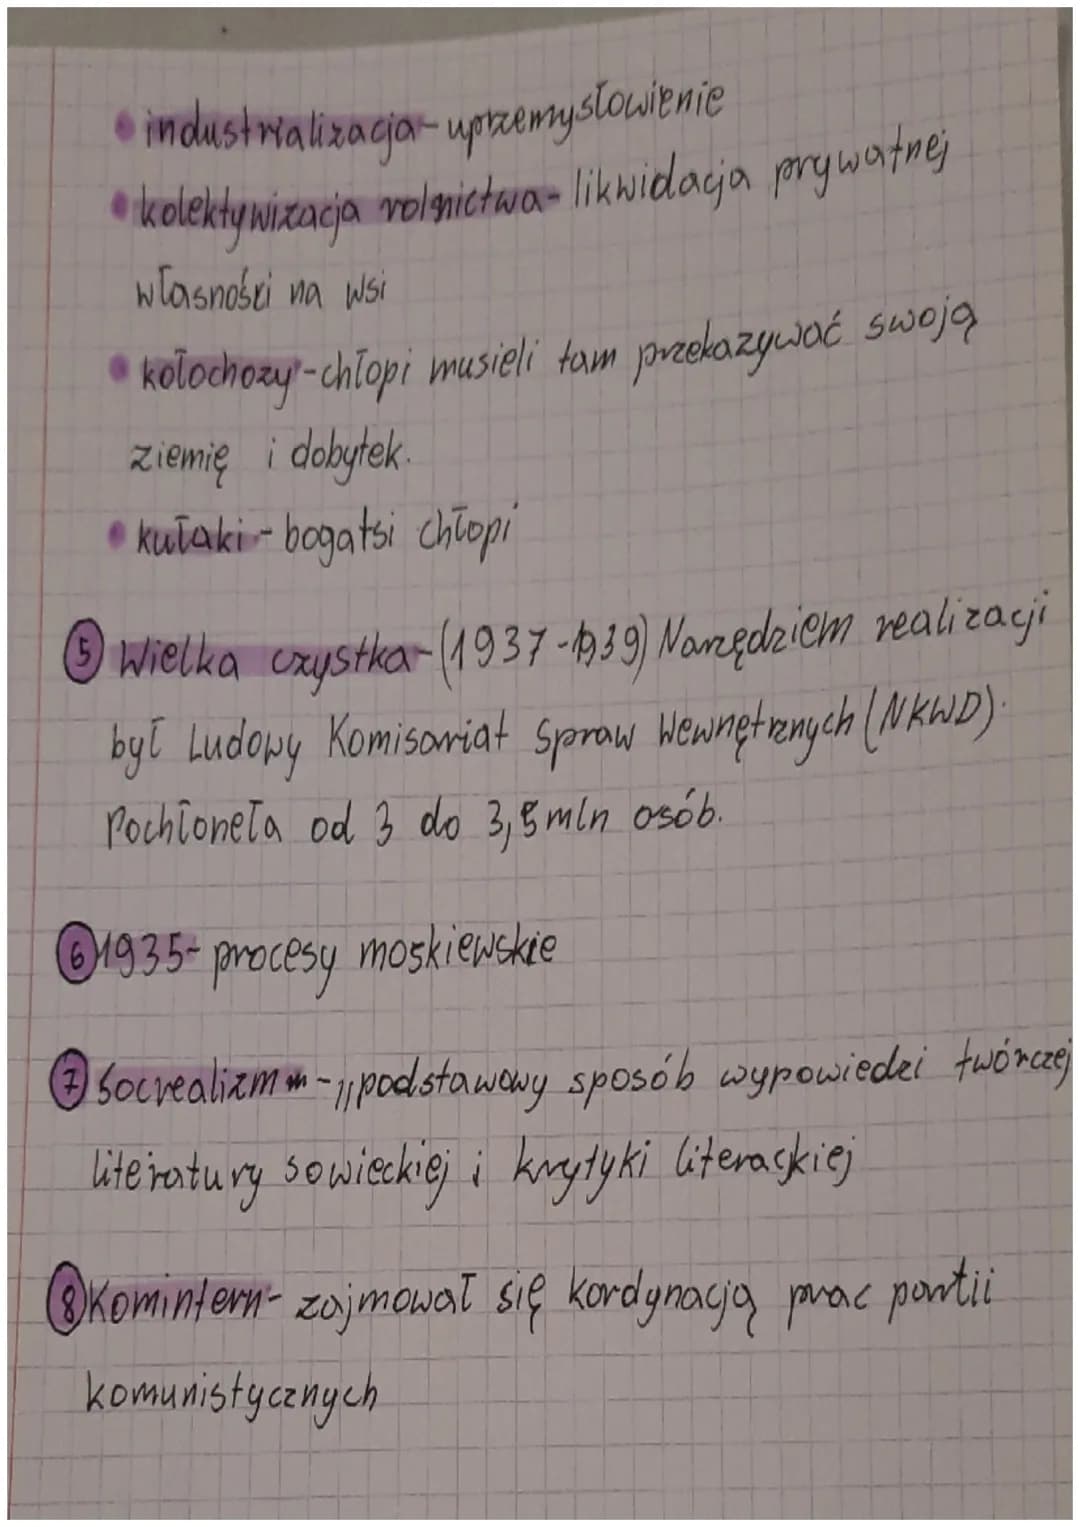 • industrializacja - uprzemysłowienie
• kolektywizacja rolnictwa - likwidacja prywatnej
własności na wsi
• kołochozy - chłopi musieli tam przekazywać swoją
ziemię i dobytek.
• kułaki - bogatsi chłopi
⑤ Wielka czystka - (1937-1939) Narzędziem realizacji
był Ludowy Komisariat Spraw Wewnętrznych (NKWD).
Pochłoneła od 3 do 3,5 mln osób.
⑥ 1935 - procesy moskiewskie
⑦ Socrealizm - „podstawowy sposób wypowiedzi twórczej
literatury sowieckiej i krytyki literackiej
⑧ Komintern - zajmował się kordynacją prac partii
komunistycznych